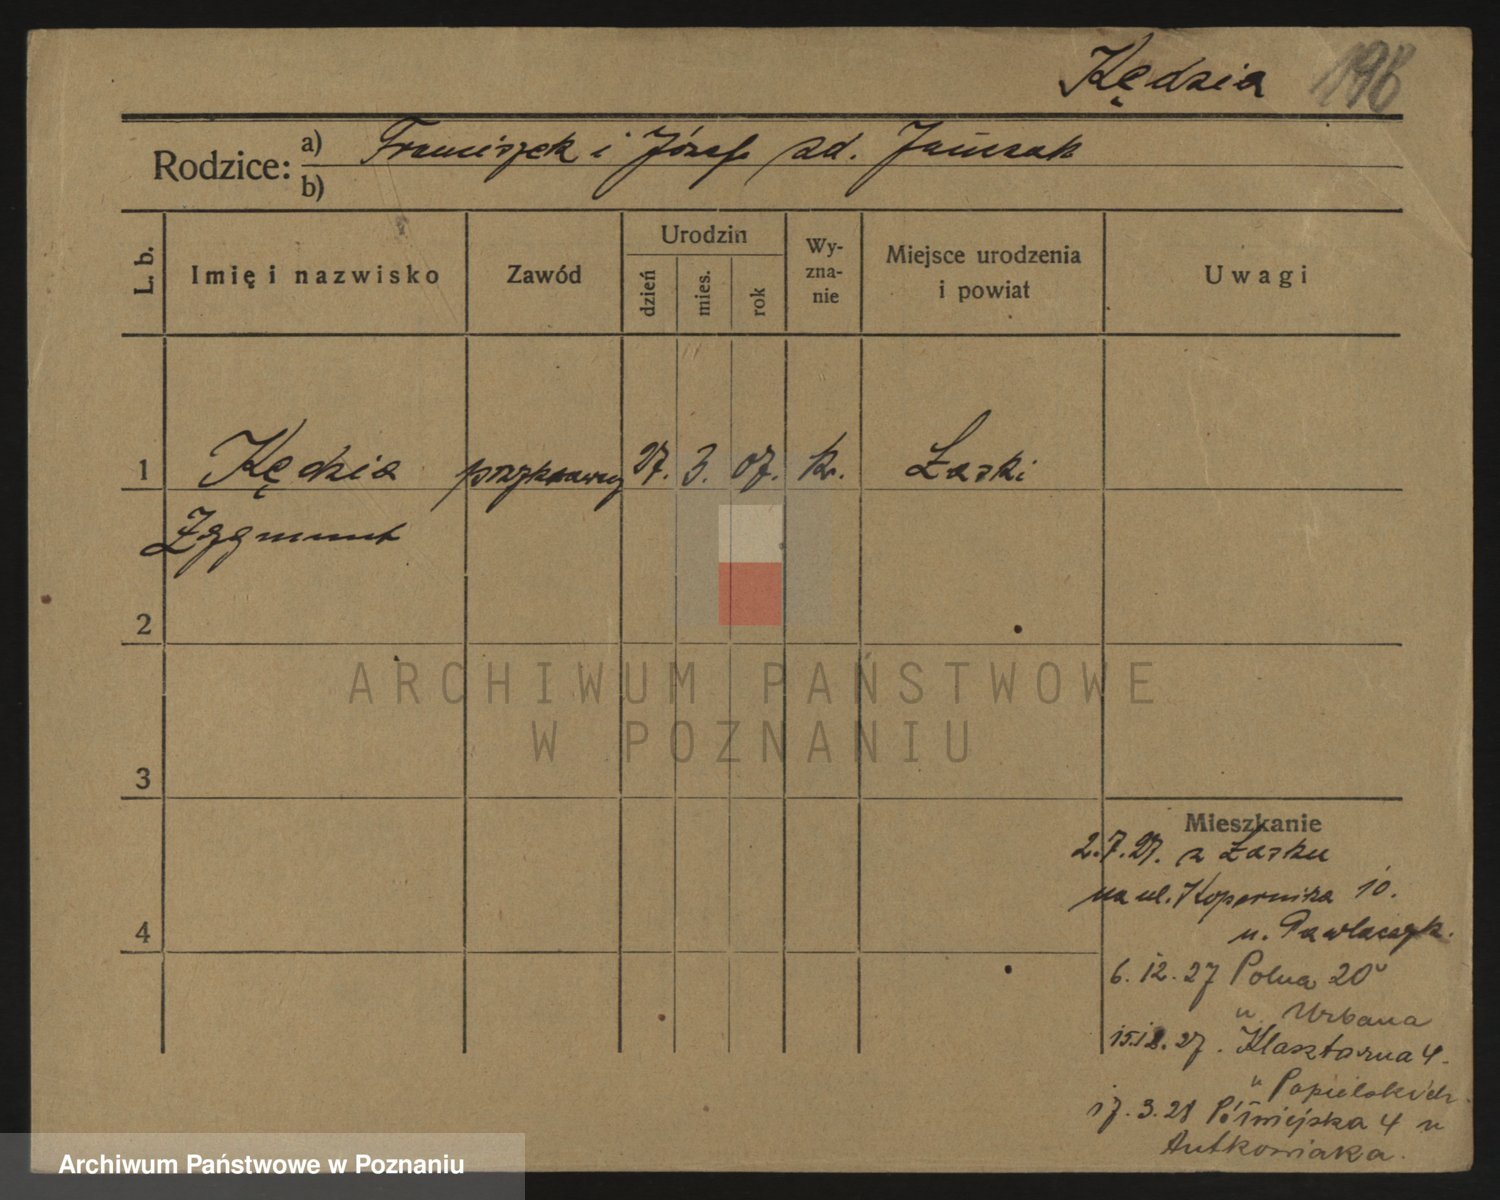 Kędzia 198
Rodzice: a) Franciszek i Józefa zd. Jańczak
b)
L. b. Imię i nazwisko Zawód Urodzin dzień mies. rok Wy-zna-nie Miejsce urodzenia i powiat Uwagi
1 Kędzia 27. 3. 07. k. Łaski
Zygmunt
2
ARCHIWUM PAŃSTWOWE
W POZNANIU
3
Mieszkanie
2.7.27. z Łasku
na ul. Kopernika 10.
u. Pawlaczyk.
4
6.12.27 Polna 20
u Urbana
15.12.27. Klasztorna 4
u Popielskich
17.3.28 4 u
Antkowiaka.
Archiwum Państwowe w Poznaniu